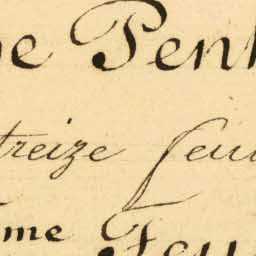 e Pen
treize feui
me Feu